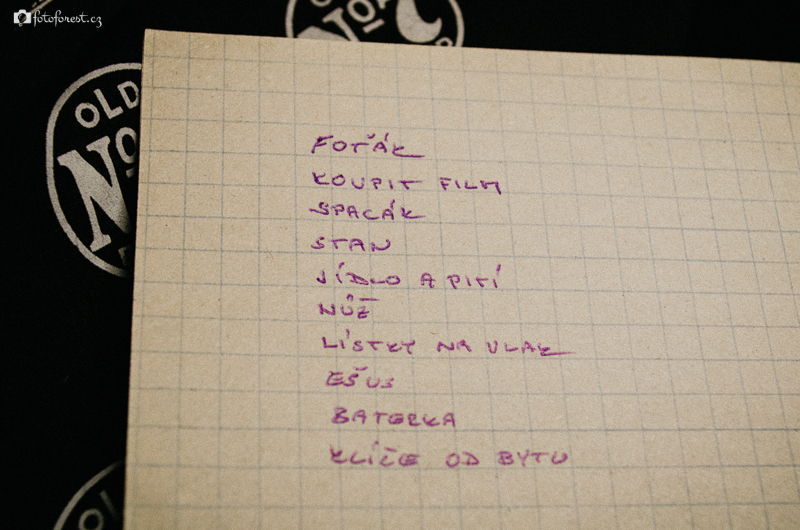 fotoforest.cz
OLD
No
No
FOŤÁK
KOUPIT FILM
SPACÁK
STAN
JÍDLO A PITÍ
NŮŽ
LÍSTKY NA VLAK
EŠUS
BATERKA
KLÍČE OD BYTU
OLD